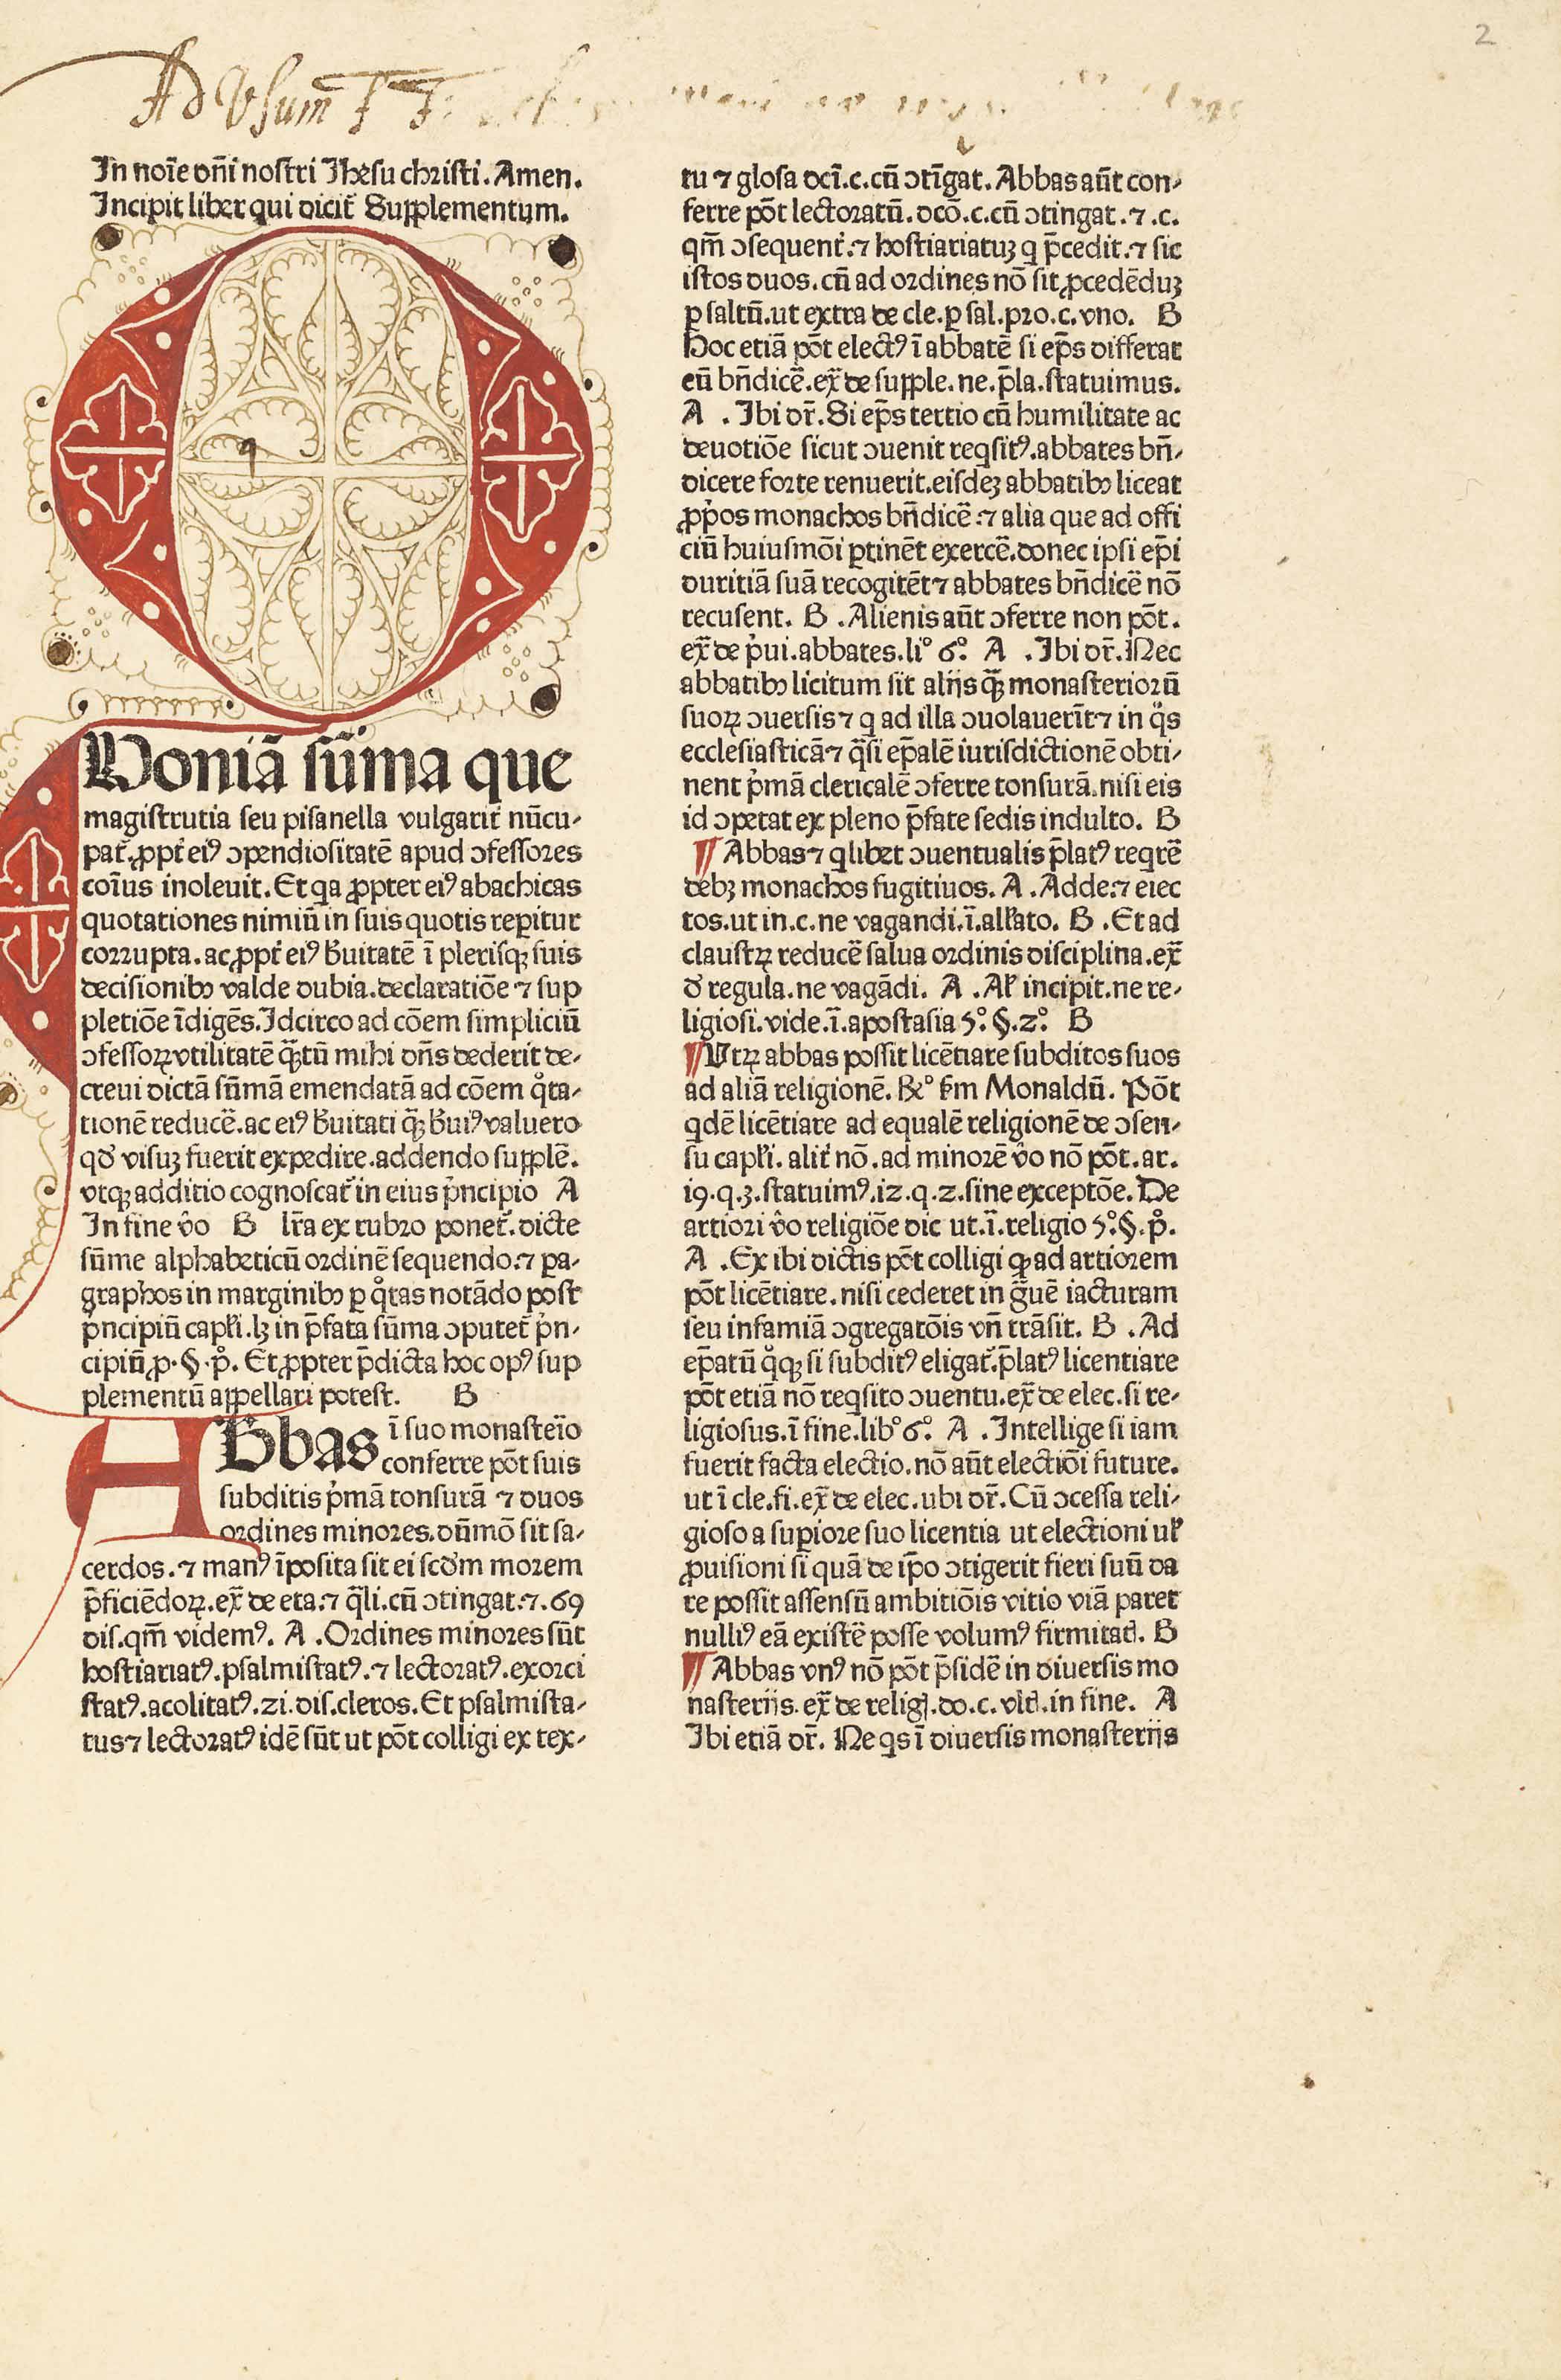 2
Ad Vsum F F
In noīe dn̄i nostri Jhesu christi. Amen.
Incipit liber qui dicit᷑ Supplementum.
QVoniā sūma que
magistrutia seu pisanella vulgarit᷑ nūcu-
pat᷑. ꝓpt᷑ eiꝰ ↄpendiositatē apud ↄfessores
coīus inoleuit. Et qa ꝓpter eiꝰ abachicas
quotationes nimiū in suis quotis reꝑitur
corrupta. ac ꝓpt᷑ eiꝰ breuitatē ī plerisqꝫ suis
decisionibꝰ valde dubia. declaratiōe ⁊ sup
pletiōe īdigēs. Idcirco ad cōem simpliciū
ↄfessoꝝ vtilitatē q̄tū mihi dn̄s dederit de-
creui dictā sūmā emendatā ad cōem qͦta-
tionē reducē. ac eiꝰ breuitati q̄ꝫ breuiꝰ valuero
qd̕ visuꝫ fuerit expedire. addendo supplē.
vtqꝫ additio cognoscat᷑ in eius pͥncipio A
In fine v̄o B lr̄a ex rubro ponet᷑. dicte
sūme alphabeticū ordinē sequendo. ⁊ ꝑa-
graphos in marginibꝰ ꝑ qͦtas notādo post
pͥncipiū capl̄i. lꝫ in p̄fata sūma ↄputet᷑ pͥn-
cipiū ꝓ .§. pͦ. Et ꝓpter p̄dicta hoc opꝰ sup
plementū appellari potest. B
ABbas ī suo monasteīo
conferre pōt suis
subditis pͥmā tonsurā ⁊ duos
ordines minores. dūmō sit sa-
cerdos. ⁊ manꝰ īposita sit ei scd̕m morem
p̄ficiēdoꝝ. ex̄ de eta. ⁊ q̄li. cū ↄtingat. ⁊. 69
dis. qm̄ videmꝰ. A . Ordines minores sūt
hostiariatꝰ. psalmistatꝰ. ⁊ lectoratꝰ. exorci
statꝰ. acolitatꝰ. 21. dis. cleros. Et psalmista-
tus ⁊ lectoratꝰ idē sūt ut pōt colligi ex tex-
tu ⁊ glosa dcī. c. cū ↄtīgat. Abbas aūt con-
ferre pōt lectoratū. dcō. c. cū ↄtingat. ⁊ .c.
qm̄ ↄsequent᷑. ⁊ hostiariatuꝫ q p̄cedit. ⁊ sic
istos duos. cū ad ordines nō sit ꝓcedēduꝫ
ꝑ saltū. ut extra de cle. ꝑ sal. pro. c. vno. B
Hoc etiā pōt electꝰ ī abbatē si ep̄s differat
eū bn̄dicē. ex̄ de supple. ne. p̄la. statuimus.
A . Ibi dr̄. Si ep̄s tertio cū humilitate ac
deuotiōe sicut ↄuenit reqsitꝰ. abbates bn̄-
dicere forte renuerit. eisdeꝫ abbatibꝰ liceat
ꝓpͥos monachos bn̄dicē. ⁊ alia que ad offi
ciū huiusmōi ꝑtinēt exercē. donec ipsi ep̄i
duritiā suā recogitēt ⁊ abbates bn̄dicē nō
recusent. B . Alienis aūt ↄferre non pōt.
ex̄ de pͥui. abbates. liͦ 6ͦ. A . Ibi dr̄. Nec
abbatibꝰ licitum sit alijs q̄ꝫ monasterioꝝ
suoꝝ ↄuersis ⁊ q ad illa ↄuolauerīt ⁊ in qͦs
ecclesiasticā ⁊ q̄si ep̄alē iurisdictionē obti-
nent pͥmā clericalē ↄferre tonsurā. nisi eis
id ↄpetat ex pleno p̄fate sedis indulto. B
¶ Abbas ⁊ qlibet ↄuentualis p̄latꝰ reqrē
debꝫ monachos fugitiuos. A . Adde. ⁊ eiec
tos. ut in. c. ne vagandi. ī. all̄ato. B . Et ad
claustꝝ reducē salua ordinis disciplina. ex̄
d̕ regula. ne vagādi. A . Al̕ incipit. ne re-
ligiosi. vide. ī. apostasia 5ͦ. §. 2ͦ. B
¶ Vtꝝ abbas possit licētiare subditos suos
ad aliā religionē. R̄ͦ s̄m Monaldū. Pōt
qdē licētiare ad equalē religionē de ↄsen-
su capl̄i. alit᷑ nō. ad minorē v̄o nō pōt. ar.
19. q. 3. statuimꝰ. 12. q. 2. sine exceptōe. De
artiori v̄o religiōe dic ut. ī. religio 5ͦ. §. pͦ.
A . Ex ibi dictis pōt colligi ꝙ ad artiorem
pōt licētiare. nisi cederet in g̃uē iacturam
seu infamiā ↄgregatōis vn̄ trāsit. B . Ad
ep̄atū qͦqꝫ si subditꝰ eligat᷑. p̄latꝰ licentiare
pōt etiā nō reqsito ↄuentu. ex̄ de elec. si re-
ligiosus. ī fine. libͦ 6ͦ. A . Intellige si iam
fuerit facta electio. nō aūt electiōi future.
ut ī cle. fi. ex̄ de elec. ubi dr̄. Cū ↄcessa reli-
gioso a suꝑiore suo licentia ut electioni ul̕
ꝓuisioni si quā de ip̄o ↄtigerit fieri suū da
re possit assensū ambitiōis vitio viā paret
nulliꝰ eā existē posse volumꝰ firmitat᷑. B
¶ Abbas vnꝰ nō pōt p̄sidē in diuersis mo
nasterijs. ex̄ de relig. do. c. vlt᷑. in fine. A
Ibi etiā dr̄. Ne qs ī diuersis monasterijs